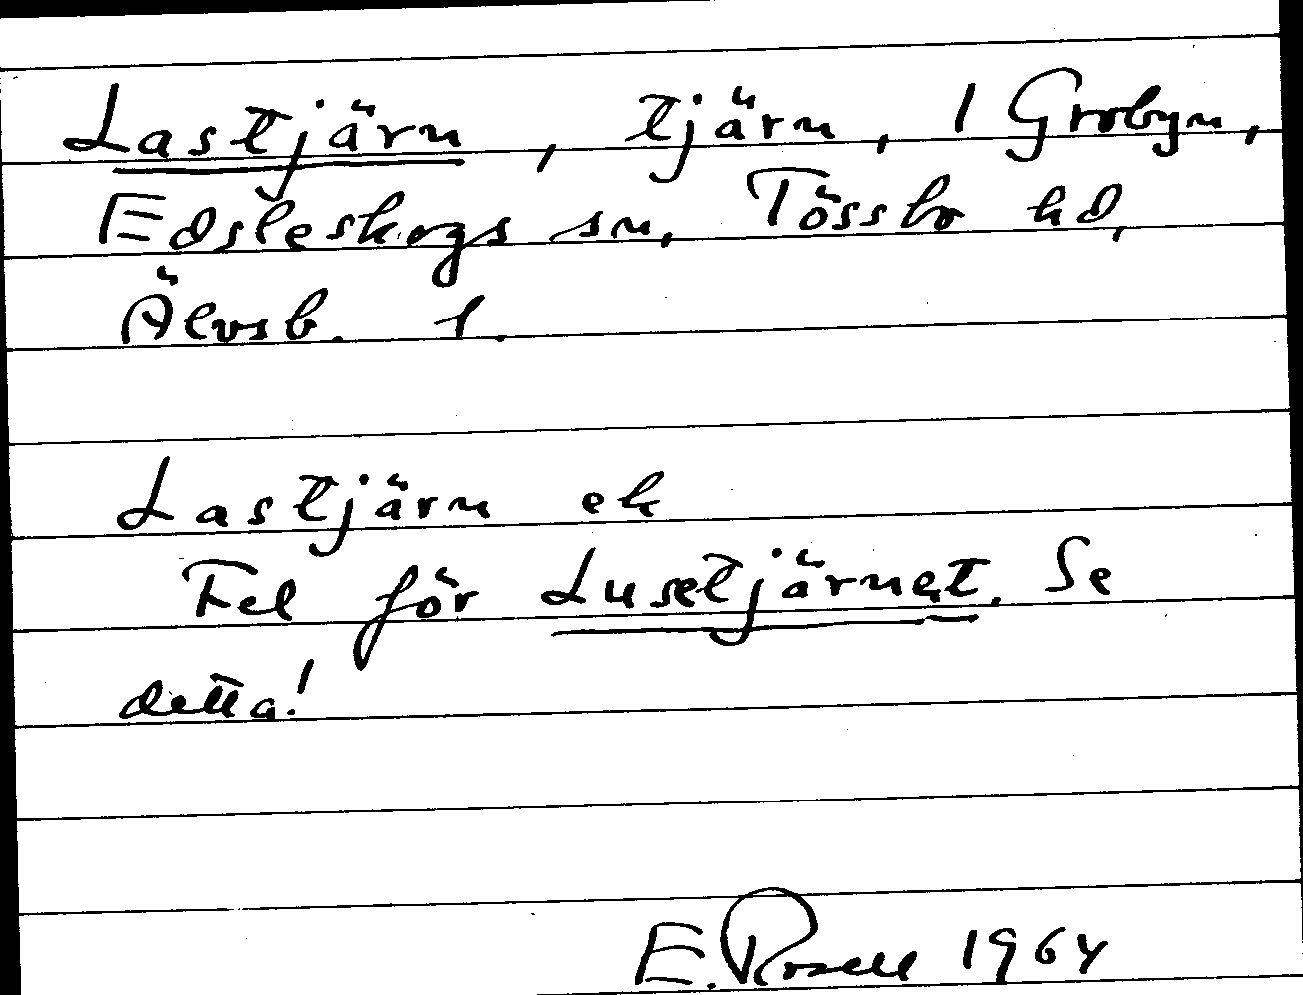 Lastjärn, tjärn, 1 Grobyn,
Edsleskogs sn, Tössbo hd,
Älvsb. l.
Lastjärn ek
Fel för Lusetjärnet. Se
detta!
E. Rosell 1964